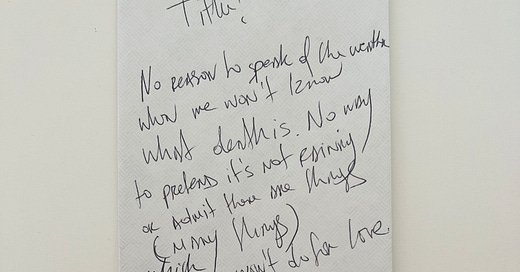 Title?
No reason to speak of the weather
when we won't know
what death is. No way
to pretend it's not raining
or admit there are things
(many things)
which won't do for love